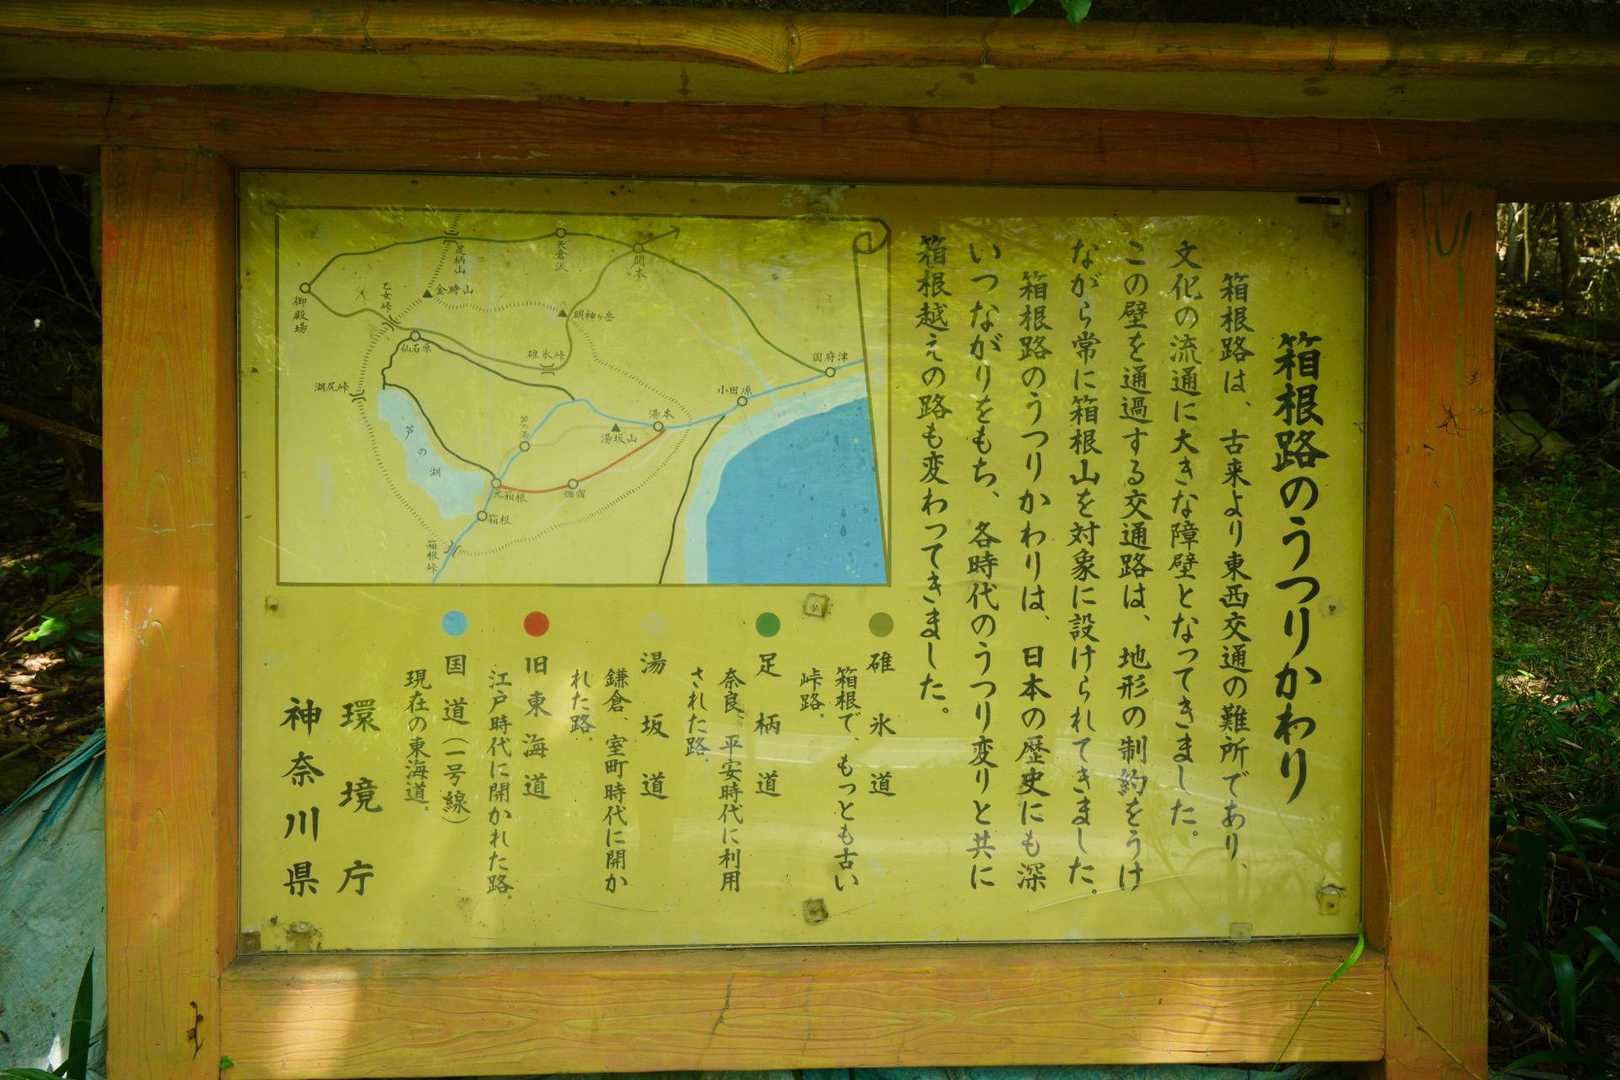 箱根路のうつりかわり
箱根路は、古来より東西交通の難所であり、
文化の流通に大きな障壁となってきました。
この壁を通過する交通路は、地形の制約をうけ
ながら常に箱根山を対象に設けられてきました。
箱根路のうつりかわりは、日本の歴史にも深
いつながりをもち、各時代のうつり変りと共に
箱根越えの路も変わってきました。
碓氷道
箱根で、もっとも古い
峠路。
足柄道
奈良、平安時代に利用
された路。
湯坂道
鎌倉、室町時代に開か
れた路。
旧東海道
江戸時代に開かれた路。
国道(一号線)
現在の東海道。
環境庁
神奈川県
御殿場
乙女峠
足柄山
金時山
矢倉沢
関本
明神ヶ岳
仙石原
碓氷峠
湖尻峠
芦の湖
芦の湯
湯坂山
湯本
小田原
国府津
元箱根
畑宿
箱根
箱根峠